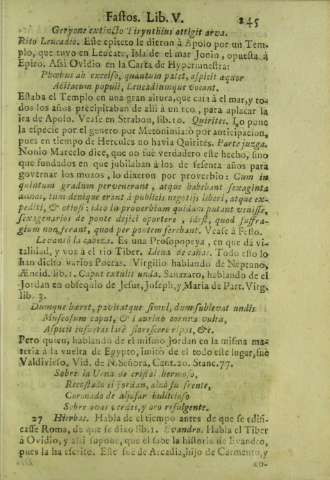 Fastos. Lib. V. 245
Geryone extincto Tirynthius attigit arva.
Rito Leucadio. Este epiteto le dieron à Apolo por un Tem-
plo, que tuvo en Leucate, Isla de el mar Jonio, opuesta à
Epiro. Assi Ovidio en la Carta de Hypermnestra:
Phœbus ab excelso, quantum patet, aspicit æquor
Actiacum populi, Leucadiumque vocant.
Estaba el Templo en una gran altura, que caìa à el mar, y to-
dos los años precipitaban de alli à un reo, para aplacar la
ira de Apolo. Vease en Strabon, lib. 10. Quirites. Lo pune
la especie por el genero por Metonimia: ò por anticipacion,
pues en tiempo de Hercules no havia Quirites. Parte juzga.
Nonio Marcelo dice, que no fuè verdadero este hecho, sino
que fundados en que jubilaban à los de sesenta años para
governar los mozos, lo dixeron por proverbio: Cum in
quintum gradum pervenerant, atque habebant sexaginta
annos, tum denique erant à publicis negotijs liberi, atque ex-
pediti, & otiosi: ideo in proverbium quidam putant venisse,
sexagenarios de ponte dejici oportere, idest, quod suffra-
gium non ferant, quod per pontem ferebant. Vease à Festo.
Levantò la cabeza. Es una Prosopopeya, en que dà vi-
talidad, y voz à el rio Tiber. Llena de cañas. Todo esto lo
han dicho varios Poetas. Virgilio hablando de Neptuno,
Æneid. lib. 1. Caput extulit unda. Sanazaro, hablando de el
Jordan en obsequio de Jesus, Joseph, y Maria de Part. Virg.
lib. 3.
Dumque hæret, pavitatque simul, dum sublevat undis
Muscosum caput, & Taurino cornua vultu,
Aspicit insuetas lucè florescere ripas, &c.
Pero quien, hablando de el mismo Jordan en la misma ma-
teria à la vuelta de Egypto, imitò de el todo este lugar, fuè
Valdivieso. Vid. de N. Señora, Cant. 20. Stanc. 77.
Sobre la Urna de cristal hermoso,
Recostado el Jordan, alzò su frente,
Coronado de aljofar
Sobre ovas verdes, y oro refulgente.
27 Hierbas. Habla de el tiempo antes de que se edifi-
casse Roma, de que se dixo lib. 1. Evandro. Habla el Tiber
à Ovidio, y assi supone, que el sabe la historia de Evandro,
pues la ha escrito. Este fuè de Arcadia, hijo de Carmento, y